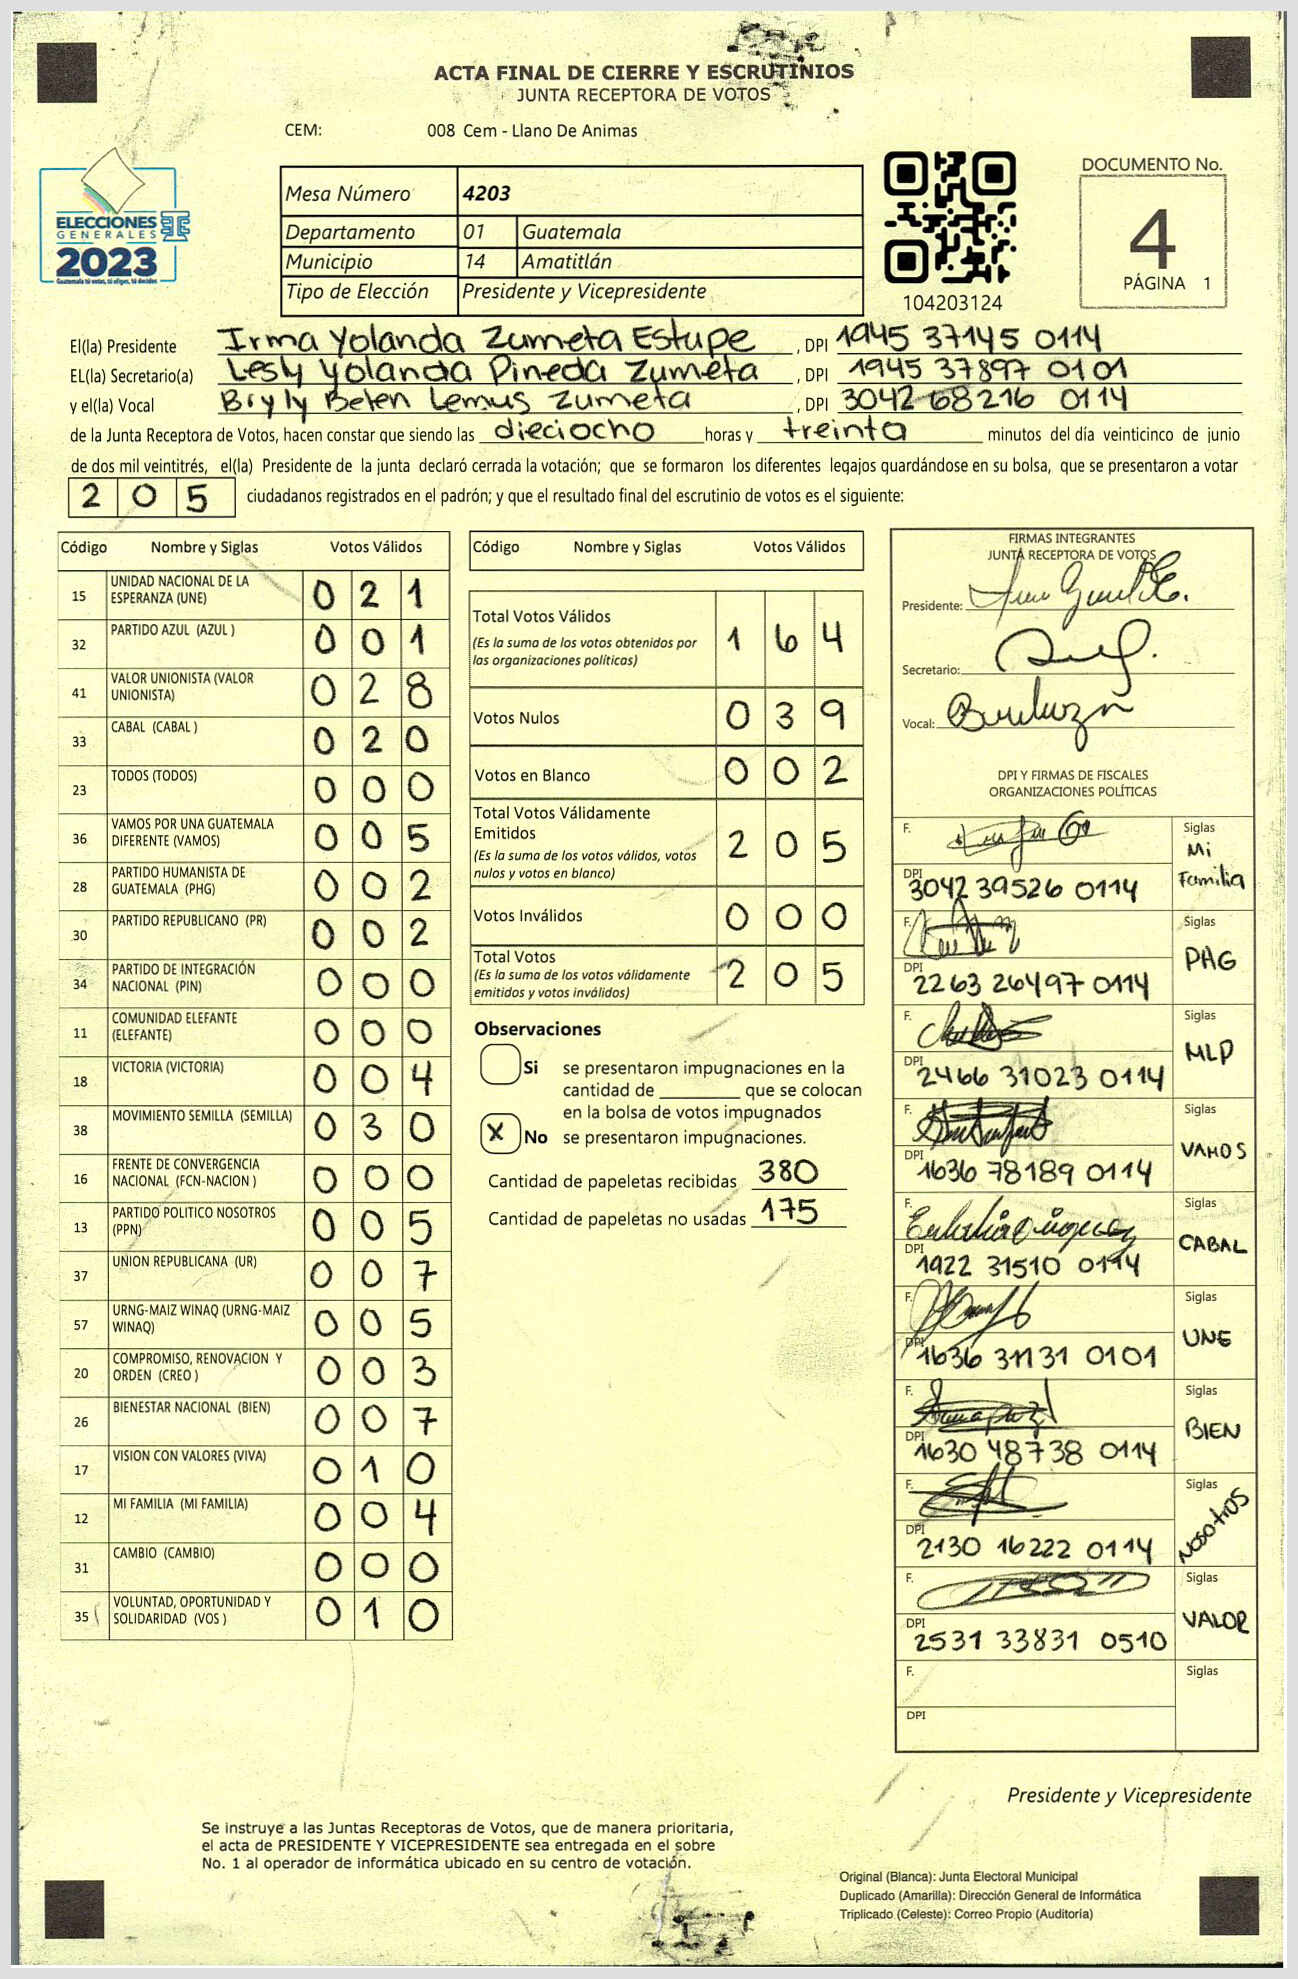 ACTA FINAL DE CIERRE Y ESCRUTINIOS
JUNTA RECEPTORA DE VOTOS
CEM: 008 Cem - Llano De Animas
ELECCIONES
GENERALES
2023
Guatemala tú votas, tú eliges, tú decides
Mesa Número 4203
Departamento 01 Guatemala
Municipio 14 Amatitlán
Tipo de Elección Presidente y Vicepresidente
104203124
DOCUMENTO No.
4
PÁGINA 1
El(la) Presidente Irma Yolanda Zumeta Estupe , DPI 1945 37145 0114
EL(la) Secretario(a) Lesly Yolanda Pineda Zumeta , DPI 1945 37897 0101
y el(la) Vocal Bryly Belen Lemus Zumeta , DPI 3042 68216 0114
de la Junta Receptora de Votos, hacen constar que siendo las dieciocho horas y treinta minutos del día veinticinco de junio
de dos mil veintitrés, el(la) Presidente de la junta declaró cerrada la votación; que se formaron los diferentes legajos guardándose en su bolsa, que se presentaron a votar
2 0 5 ciudadanos registrados en el padrón; y que el resultado final del escrutinio de votos es el siguiente:
Código Nombre y Siglas Votos Válidos
15 UNIDAD NACIONAL DE LA ESPERANZA (UNE) 0 2 1
32 PARTIDO AZUL (AZUL ) 0 0 1
41 VALOR UNIONISTA (VALOR UNIONISTA) 0 2 8
33 CABAL (CABAL ) 0 2 0
23 TODOS (TODOS) 0 0 0
36 VAMOS POR UNA GUATEMALA DIFERENTE (VAMOS) 0 0 5
28 PARTIDO HUMANISTA DE GUATEMALA (PHG) 0 0 2
30 PARTIDO REPUBLICANO (PR) 0 0 2
34 PARTIDO DE INTEGRACIÓN NACIONAL (PIN) 0 0 0
11 COMUNIDAD ELEFANTE (ELEFANTE) 0 0 0
18 VICTORIA (VICTORIA) 0 0 4
38 MOVIMIENTO SEMILLA (SEMILLA) 0 3 0
16 FRENTE DE CONVERGENCIA NACIONAL (FCN-NACION ) 0 0 0
13 PARTIDO POLITICO NOSOTROS (PPN) 0 0 5
37 UNION REPUBLICANA (UR) 0 0 7
57 URNG-MAIZ WINAQ (URNG-MAIZ WINAQ) 0 0 5
20 COMPROMISO, RENOVACION Y ORDEN (CREO ) 0 0 3
26 BIENESTAR NACIONAL (BIEN) 0 0 7
17 VISION CON VALORES (VIVA) 0 1 0
12 MI FAMILIA (MI FAMILIA) 0 0 4
31 CAMBIO (CAMBIO) 0 0 0
35 VOLUNTAD, OPORTUNIDAD Y SOLIDARIDAD (VOS ) 0 1 0
Código Nombre y Siglas Votos Válidos
Total Votos Válidos 1 6 4
(Es la suma de los votos obtenidos por
las organizaciones políticas)
Votos Nulos 0 3 9
Votos en Blanco 0 0 2
Total Votos Válidamente
Emitidos 2 0 5
(Es la suma de los votos válidos, votos
nulos y votos en blanco)
Votos Inválidos 0 0 0
Total Votos 2 0 5
(Es la suma de los votos válidamente
emitidos y votos inválidos)
Observaciones
Si se presentaron impugnaciones en la
cantidad de ________ que se colocan
en la bolsa de votos impugnados
X No se presentaron impugnaciones.
Cantidad de papeletas recibidas 380
Cantidad de papeletas no usadas 175
FIRMAS INTEGRANTES
JUNTA RECEPTORA DE VOTOS
Presidente:
Secretario:
Vocal:
DPI Y FIRMAS DE FISCALES
ORGANIZACIONES POLÍTICAS
F. Siglas Mi Familia
DPI 3042 39526 0114
F. Siglas PHG
DPI 2263 26497 0114
F. Siglas MLP
DPI 2466 31023 0114
F. Siglas VAMOS
DPI 1636 78189 0114
F. Siglas CABAL
DPI 1922 31510 0114
F. Siglas UNE
DPI 1636 31131 0101
F. Siglas BIEN
DPI 1630 48738 0114
F. Siglas NOSOTROS
DPI 2130 16222 0114
F. Siglas VALOR
DPI 2531 33831 0510
F. Siglas
DPI
Presidente y Vicepresidente
Se instruye a las Juntas Receptoras de Votos, que de manera prioritaria,
el acta de PRESIDENTE Y VICEPRESIDENTE sea entregada en el sobre
No. 1 al operador de informática ubicado en su centro de votación.
Original (Blanca): Junta Electoral Municipal
Duplicado (Amarilla): Dirección General de Informática
Triplicado (Celeste): Correo Propio (Auditoría)